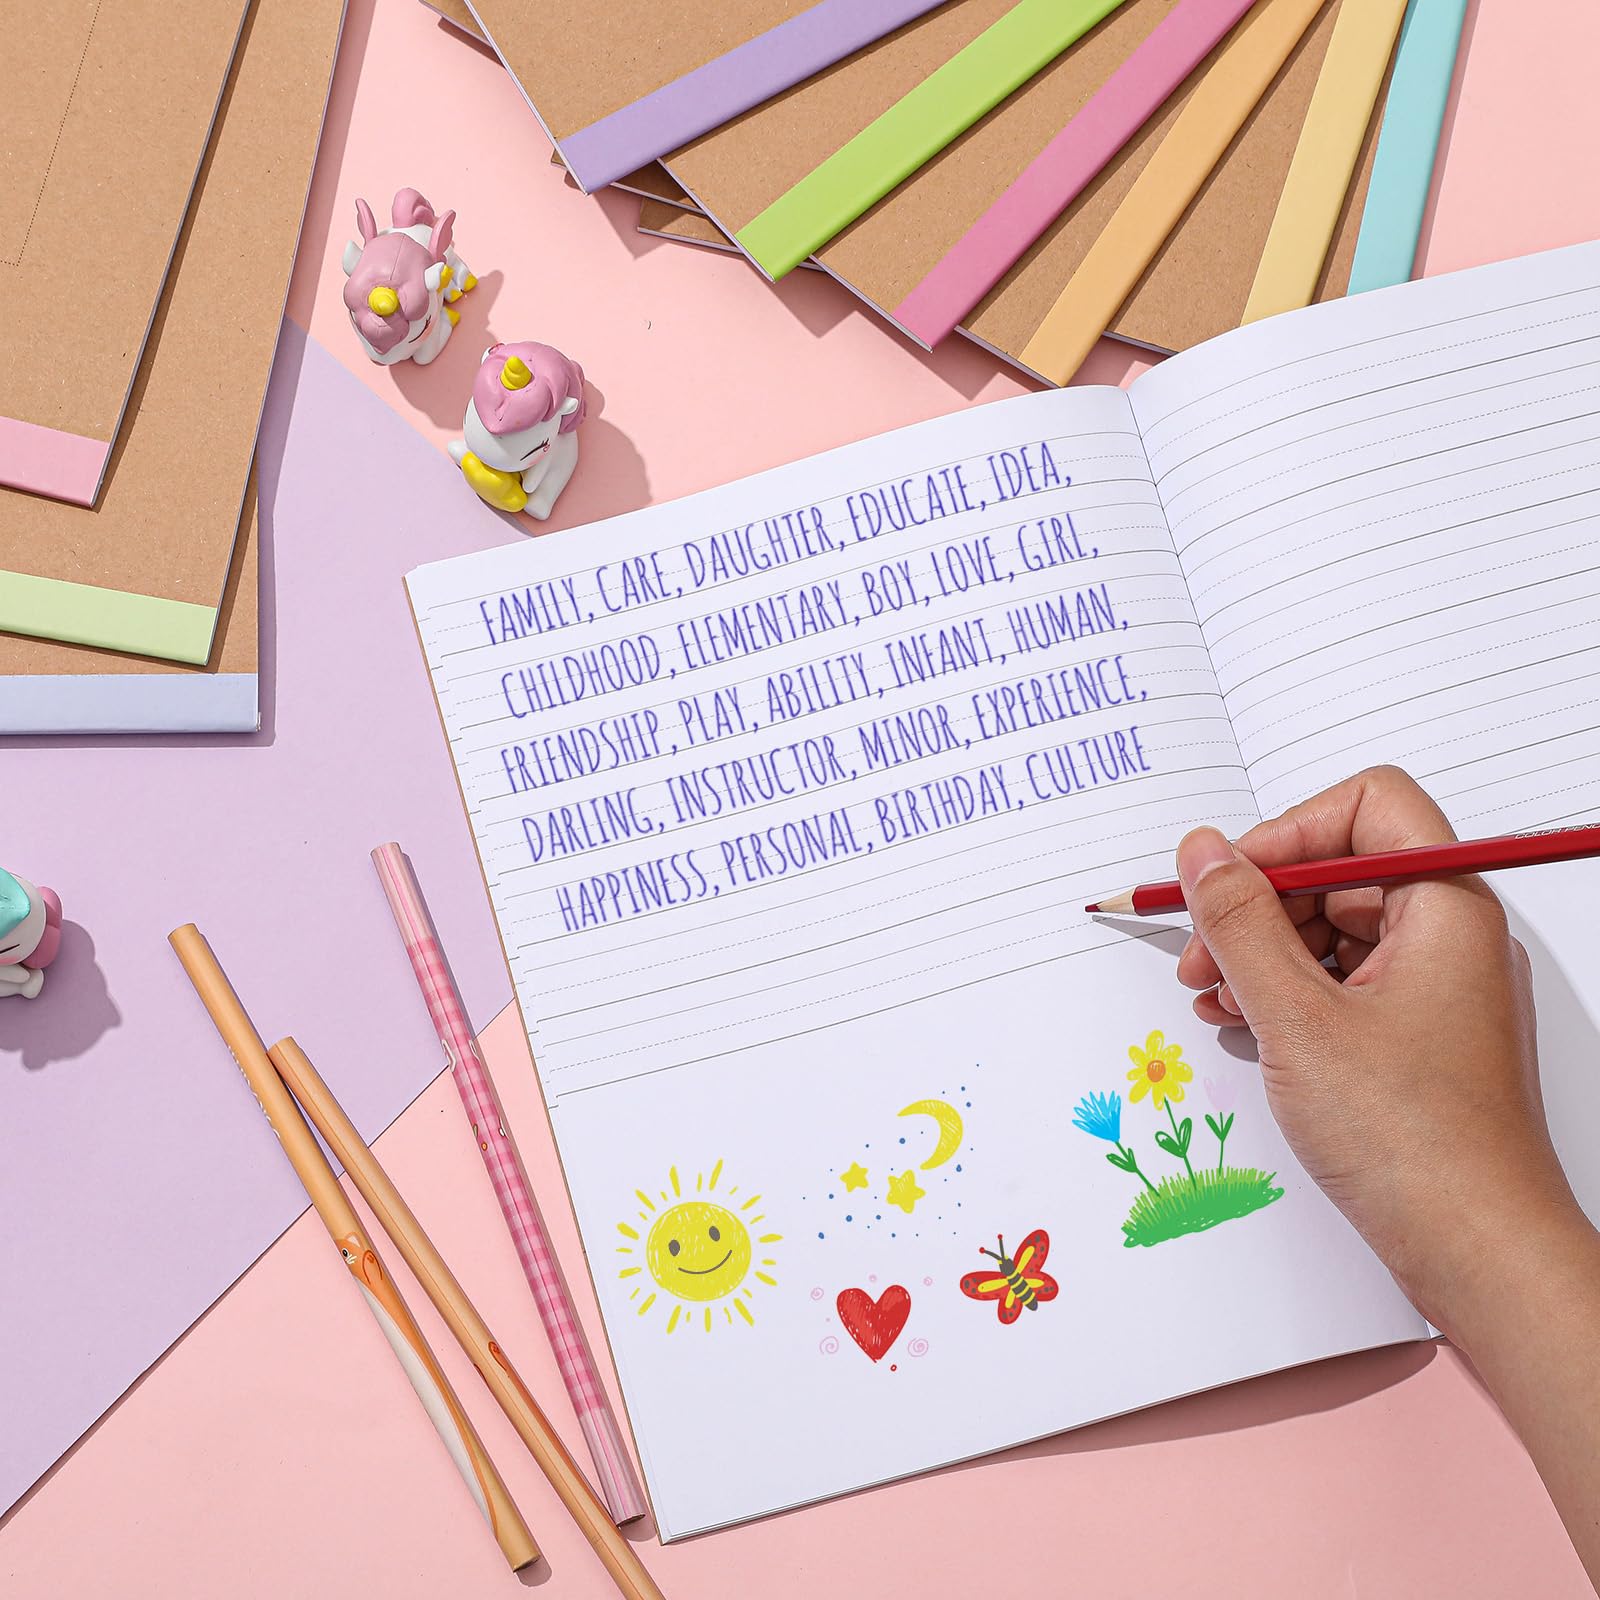 FAMILY, CARE, DAUGHTER, EDUCATE, IDEA,
CHILDHOOD, ELEMENTARY, BOY, LOVE, GIRL,
FRIENDSHIP, PLAY, ABILITY, INFANT, HUMAN,
DARLING, INSTRUCTOR, MINOR, EXPERIENCE,
HAPPINESS, PERSONAL, BIRTHDAY, CULTURE
COLOR